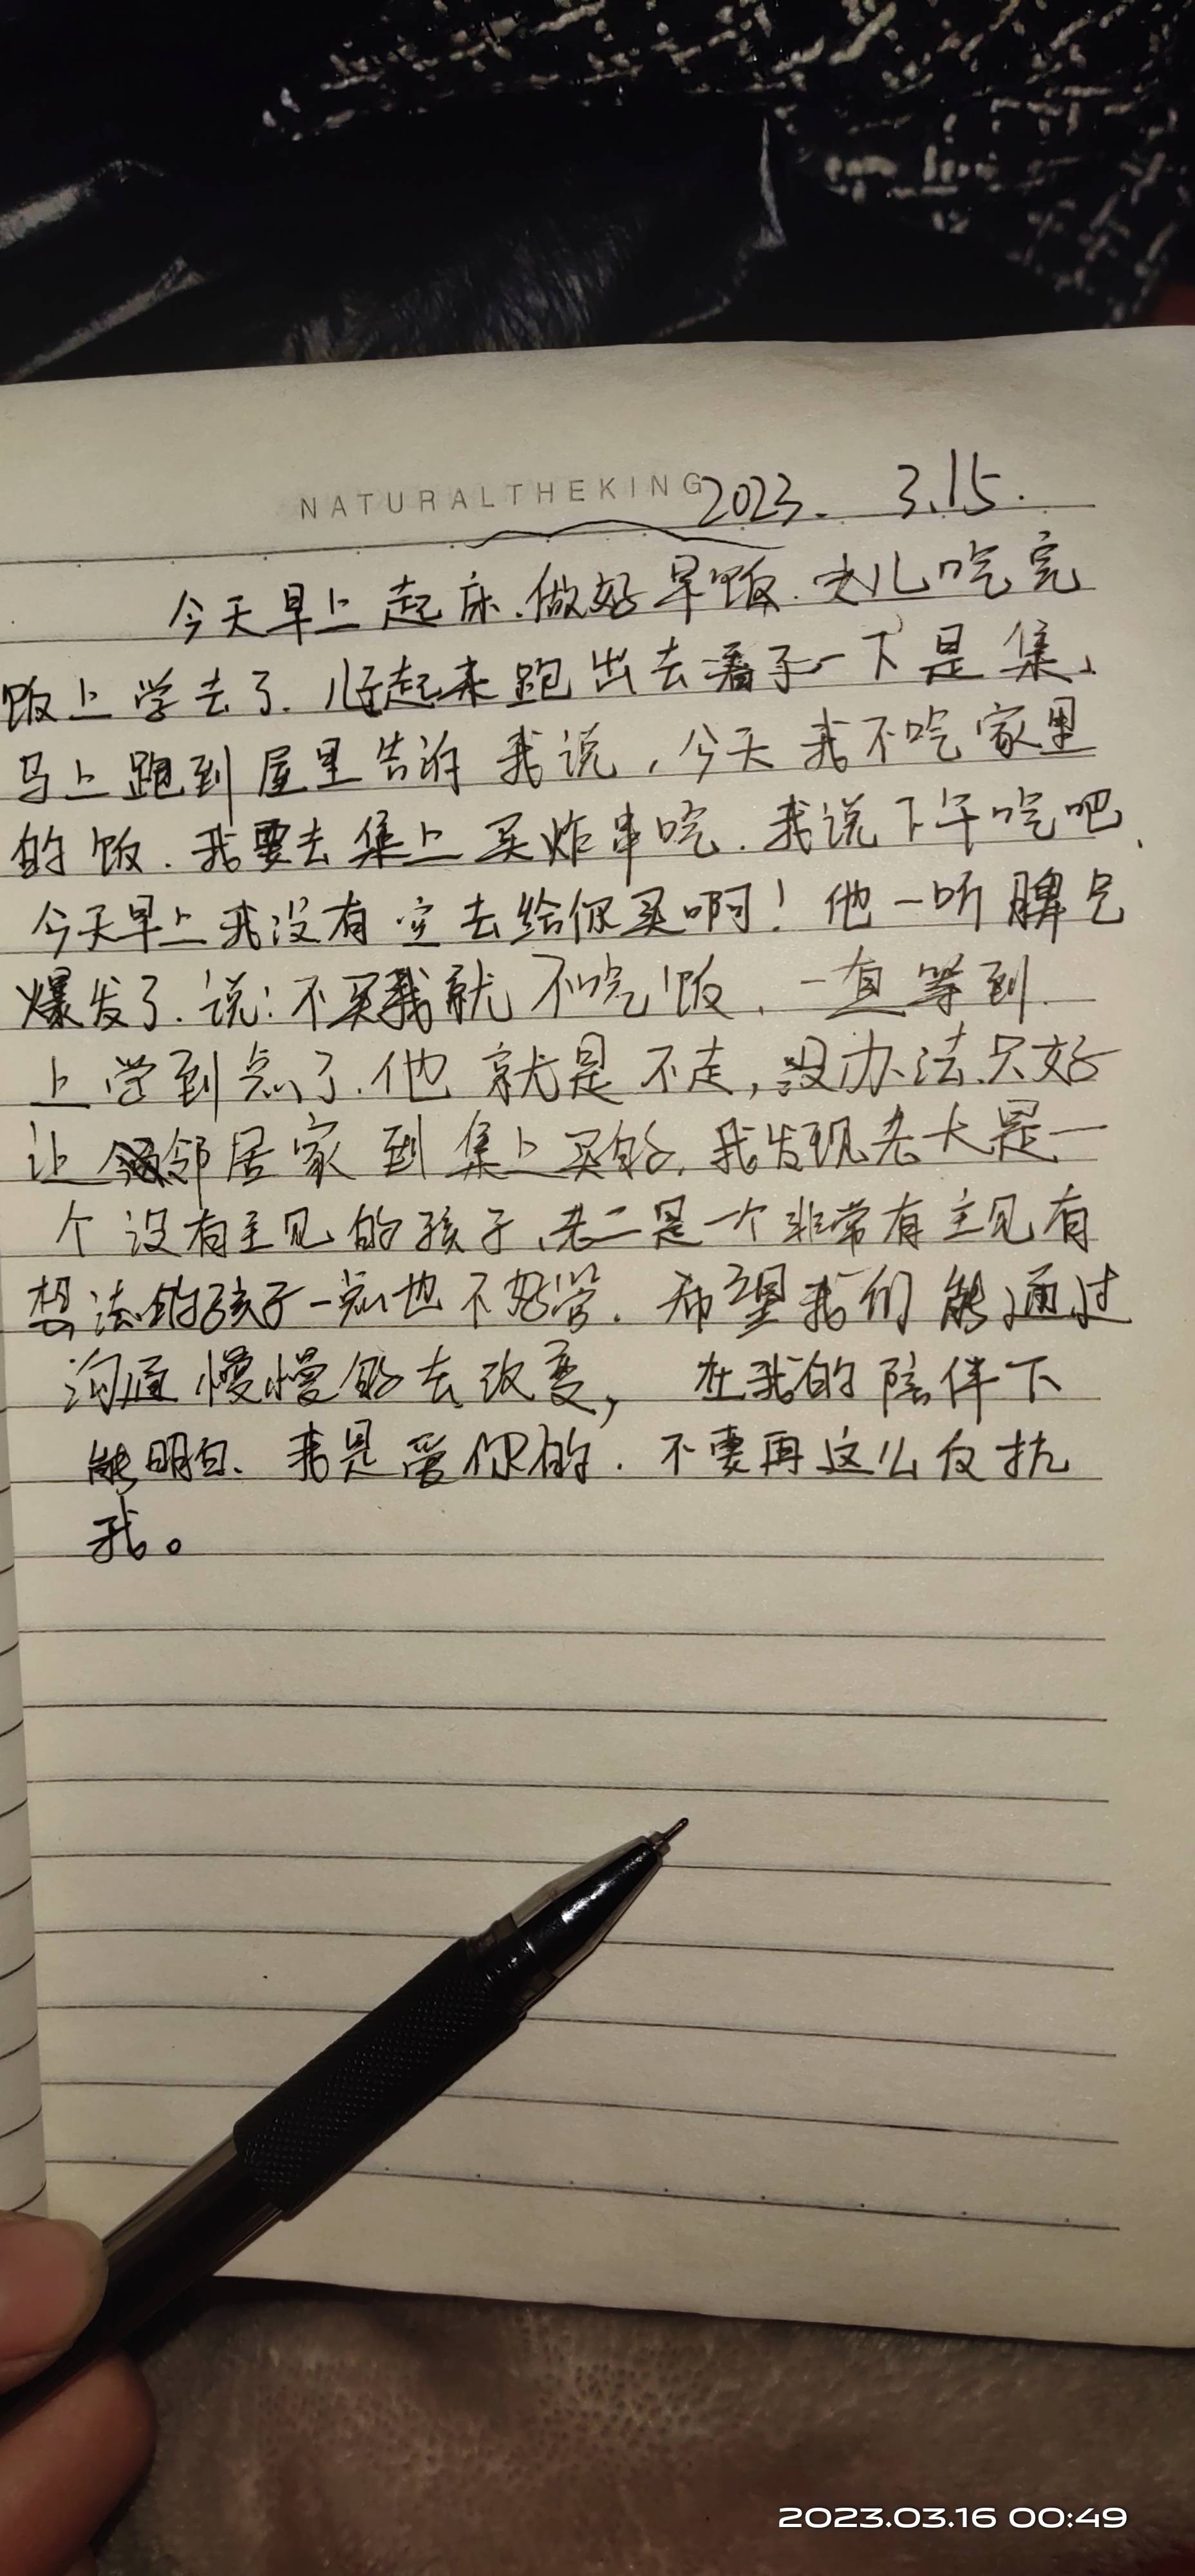 NATURALTHEKING
2023. 3.15.
今天早上起床.做好早饭.女儿吃完
饭上学去了.儿子起来跑出去看了一下是集、
马上跑到屋里告诉我说,今天我不吃家里
的饭.我要去集上买炸串吃.我说下午吃吧、
今天早上我没有空去给你买啊!他一听脾气
爆发了.说:不买我就不吃饭.一直等到
上学到点了.他就是不走,没办法.只好
让邻居家到集上买的.我发现老大是一
个没有主见的孩子、老二是一个非常有主见有
想法的孩子一点也不好管.希望我们能通过
沟通慢慢的去改变,在我的陪伴下
能明白、我是爱你的.不要再这么反抗
我。
2023.03.16 00:49